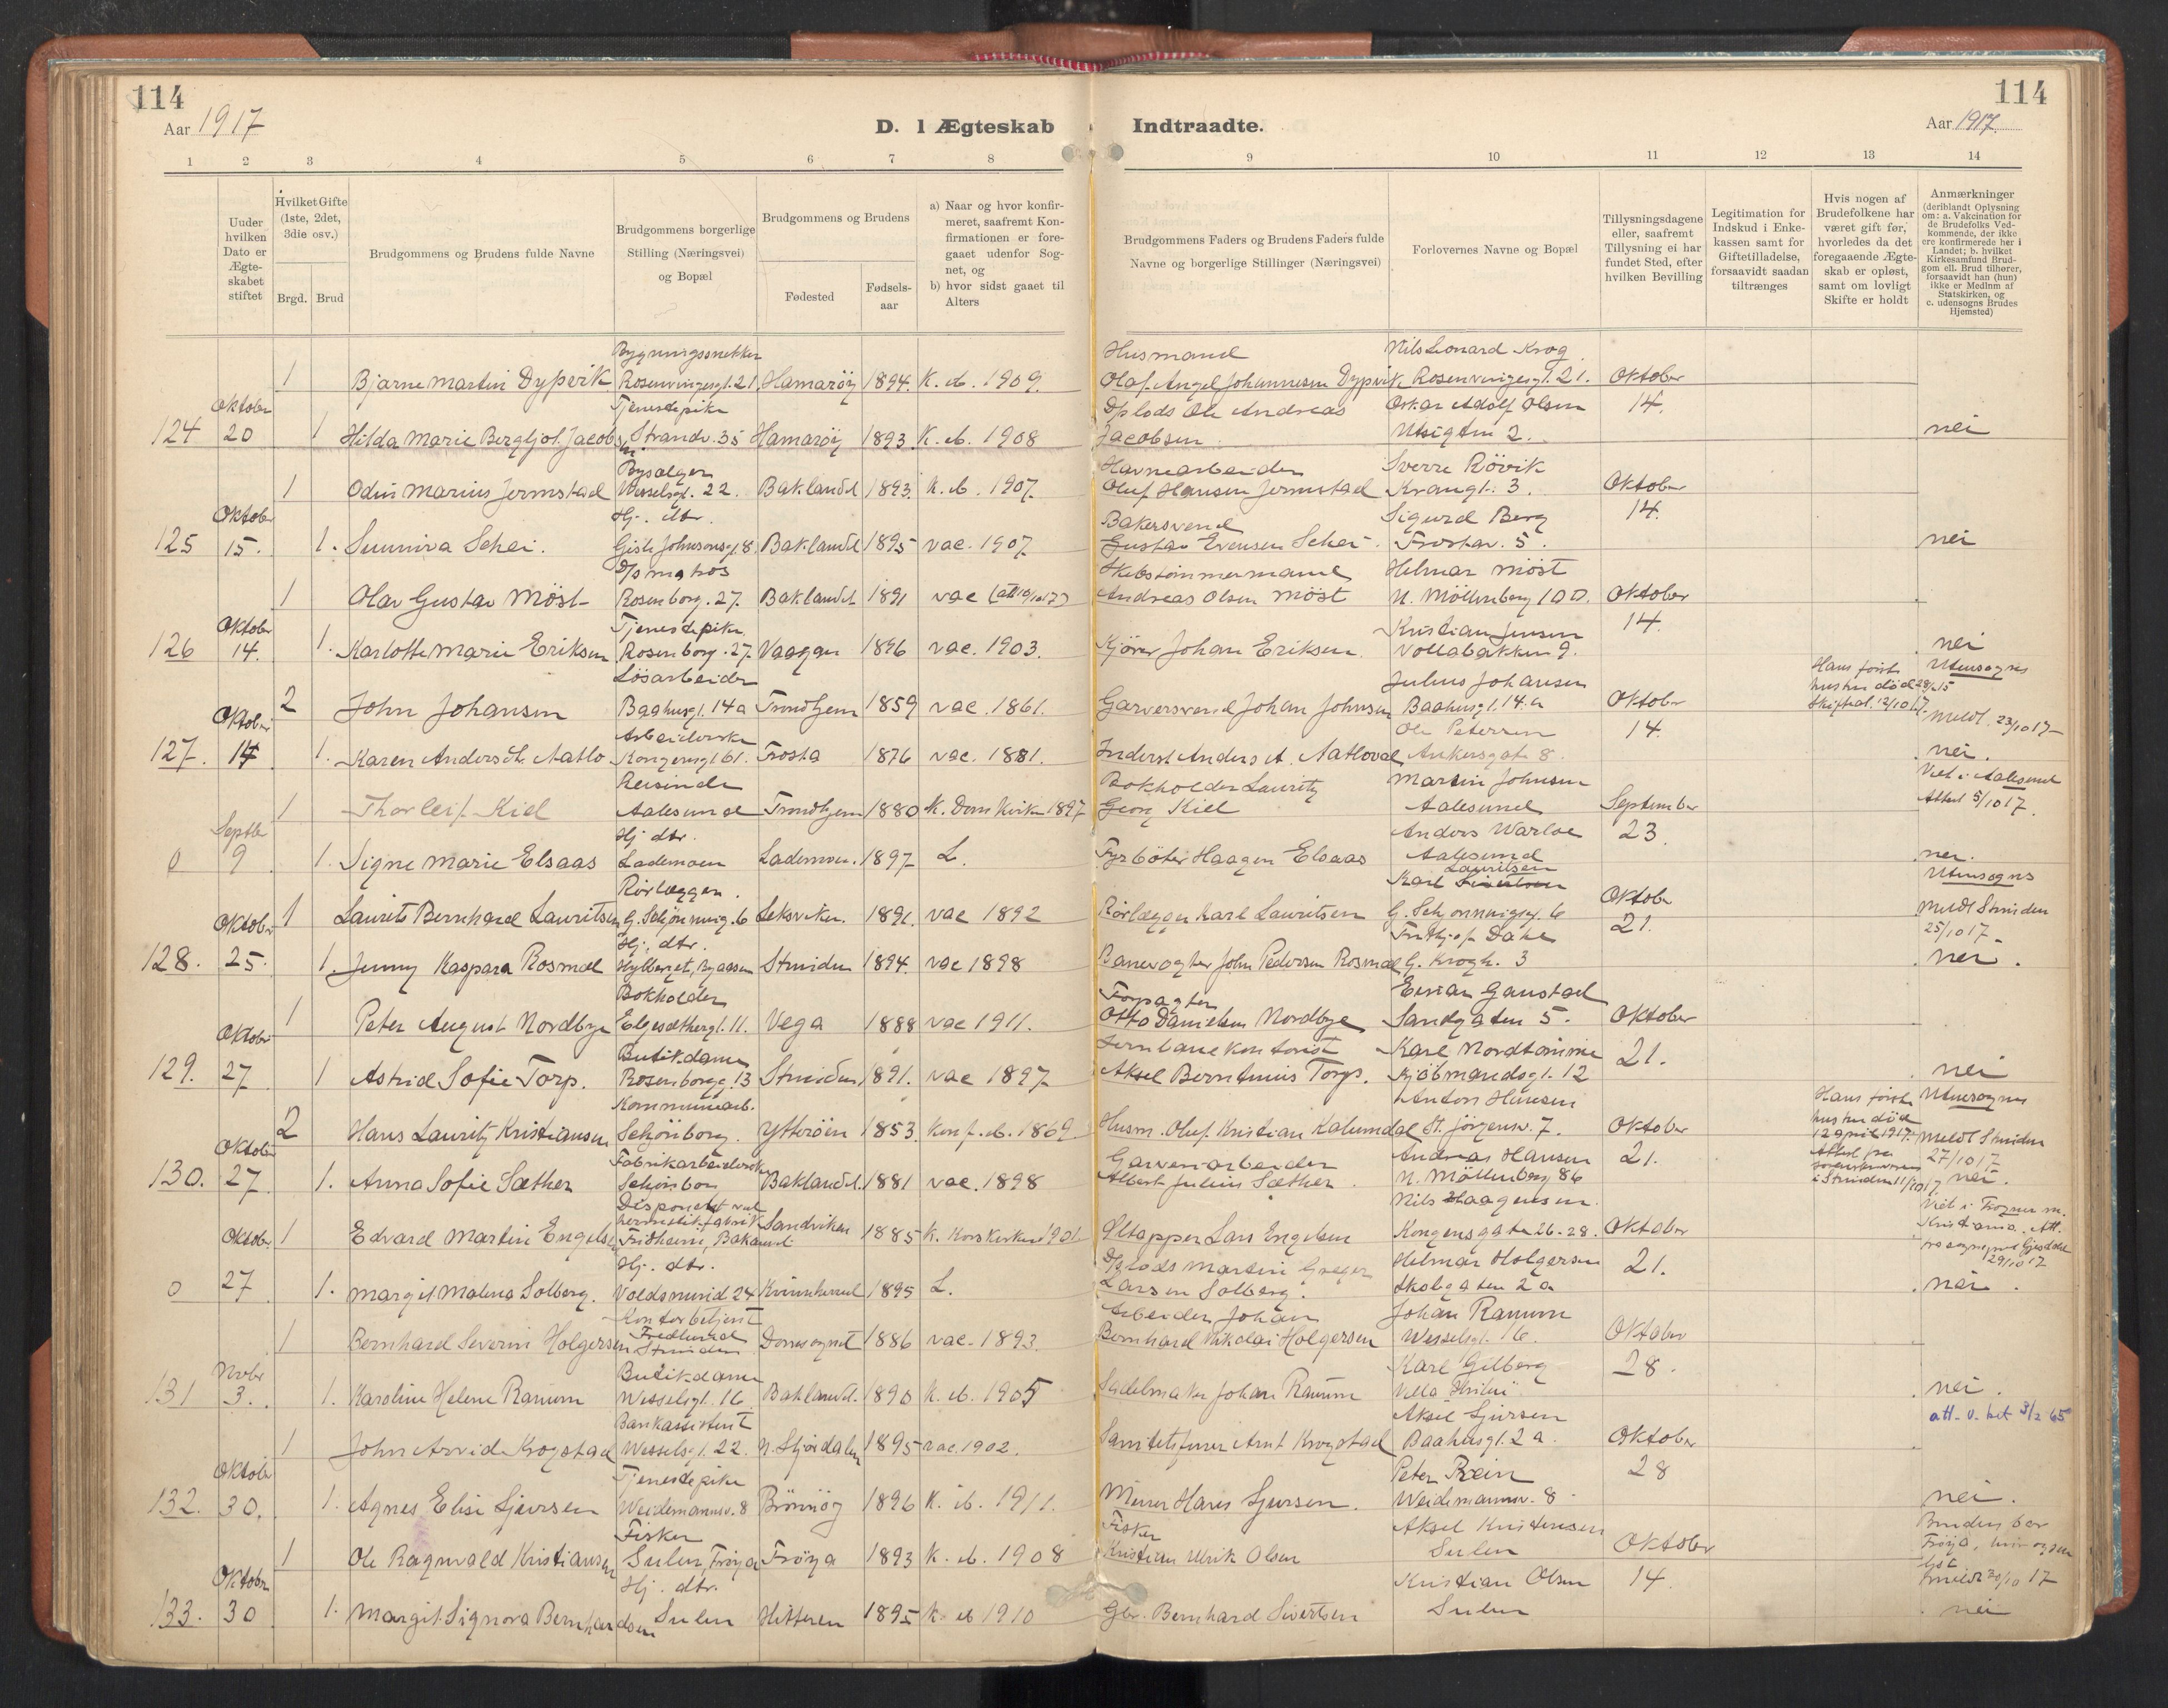 114
Aar 1917
D. I Ægteskab
Indtraadte.
114
Aar 1917
1 2 3 4 5 6 7 8 9 10 11 12 13 14
Uuder hvilken Dato er Ægte-skabet stiftet
Hvilket Gifte (1ste, 2det, 3die osv.)
Brgd. Brud
Brudgommens og Brudens fulde Navne
Brudgommens borgerlige Stilling (Næringsvei) og Bopæl
Brudgommens og Brudens
Fødested
Fødsels-aar
a) Naar og hvor konfir-meret, saafremt Kon-firmationen er fore-gaaet udenfor Sog-net, og
b) hvor sidst gaaet til Alters
Brudgommens Faders og Brudens Faders fulde Navne og borgerlige Stillinger (Næringsvei)
Forlovernes Navne og Bopæl
Tillysningsdagene eller, saafremt Tillysning ei har fundet Sted, efter hvilken Bevilling
Legitimation for Indskud i Enke-kassen samt for Giftetilladelse, forsaavidt saadan tiltrænges
Hvis nogen af Brudefolkene har været gift før, hvorledes da det foregaaende Ægte-skab er opløst, samt om lovligt Skifte er holdt
Anmærkninger (deriblandt Oplysning om: a. Vakcination for de Brudefolks Ved-kommende, der ikke ere konfirmerede her i Landet; b. hvilket Kirkesamfund Brud-gom ell. Brud tilhører, forsaavidt han (hun) ikke er Medlnm af Statskirken, og c. udensogns Brudes Hjemsted)
Bygningssnekker Husmand Nils Leonard Krog
1 Bjarne Martin Dypvik Rosenvingesgt. 21 Hamarøy 1894. K. d. 1909. Olaf Angel Johannesen Dypvik Rosenvingesgt. 21. Oktober
Oktober Tjenestepike Ole Andreas Oskar Adolf Olsen 14.
124 20 1 Hilda Marie Bergljot Jacobsen Strandv. 35 Hamarøy 1893. K. d. 1908 Jacobsen Utsigten 2. nei
Bysælger Havnearbeider Sverre Rövik
1 Odin Marius Jermstad Wesselsgt. 22. Baklandet 1893. K. d. 1907. Oluf Hansen Jermstad Krangt. 3. Oktober
Oktober Hj. dtr. Bakersvend Sigurd Berg 14.
125 15. 1. Sunniva Schei. Gisle Johnsonsgt. 8. Baklandet 1895 vac. 1907. Gustav Evensen Schei. Frostav. 5. nei
D/s matros Skibstømmermand Helmar Möst
1 Olav Gustav Möst Rosenborg. 27. Baklandet 1891 vac Andreas Olsen Möst N. Möllenberg 100. Oktober
Oktober Tjenestepike Kristian Jensen 14.
126 14. 1. Karlotte Marie Eriksen Rosenborg. 27. Vaagan 1896 vac. 1903. Kjører Johan Eriksen Vollabakken 9. nei
Løsarbeider Julius Johansen Hans første hustru død 28/2 15 Skifteat. 12/10 17. Utensogns
2 John Johansen Baahusgt. 14a Trondhjem 1859 vac. 1861. Garversvend Johan Johnsen Baahusgt. 14. a Oktober meldt. 23/10 17
Oktober Arbeiderske Ole Petersen 14.
127. 14 1. Karen Andersdtr. Natlo Kongensgt 61. Frosta 1876 vac. 1881. Inderst Anders A. Natloval Ankersgate 8. nei.
Reisende Bokholder Lauritz Martin Johnsen Viet i Aalesund
1 Thorleif Kiel Aalesund Trondhjem 1880 K. Domkirken 1897 Georg Kiel Aalesund September Attest 5/10 17.
Septbr Hj. dtr. Anders Warloe 23.
0 9 1. Signe Marie Elsaas Lademoen Lademoen. 1897. L. Fyrbøter Haagen Elsaas Aalesund nei.
Rørlægger. Karl Lauritsen Utensogns
1 Laurits Bernhard Lauritsen G. Schjønningsg. 6 Leksviken. 1891. vac 1892 Rørlægger Karl Lauritsen G. Schjønningsg. 6 Oktober Meldt Strinden
Oktober Hj. dtr. Frithjof Dahl 21. 25/10 17
128. 25. 1. Jenny Kaspara Rosmæl Byaasen Strinden 1894. vac 1898 Banevogter John Pedersen Rosmæl G. Kroght. 3 nei.
Bokholder Forpagter Einar Ganstad
1 Peter August Nordbye Elgesæthergt. 11. Vega 1888 vac 1911. Otto Danielsen Nordbye Sandgaten 5. Oktober
Oktober Butikdame Jernbanekontorist Karl Nordtömme 21.
129. 27 1 Astrid Sofie Torp. Rosenborgg. 13 Strinden 1891. vac 1897 Aksel Berntinius Torp. Kjöbmandsgt. 12 nei
Kommunearb. Anton Hansen Hans første hustru død 12 april 1917. Utensogns
2 Hans Lauritz Kristiansen Schjönborg. Ytterøen 1853. konf. d. 1869. Husm. Oluf Kristian Kalumdal St. Jörgensv. 7. Oktober meldt Strinden
Oktober Fabrikarbeiderske Garveriarbeider Andreas Hansen 21. i Strinden 11/10 17. 27/10 17
130. 27. 1. Anna Sofie Sæther Baklandet. 1881 vac. 1898 Albert Julius Sæther. N. Möllenberg 86 nei.
Disponent ved hermetikfabrik Nils Haagensen Viet i Frogner m. Kristiania. Att.
Oktober 1 Edvard Martin Engelsen Fridheim, Baklandet Sandviken 1885 K. Korskirken 1901 Øltapper Lars Engelsen Kongensgaten 26-28. Oktober 29/10 17
Hj. dtr. Martin Helmar Holgersen 21.
0 27 1. Margit Malena Solberg. Voldsminde 24 Kvinnherred 1895 L. Larsen Solberg. Skolegaten 2a nei.
Kontorbetjent Arbeider Johan Johan Ranum
1 Bernhard Severin Holgersen Fredlund Strinden Domsognet 1886 vac. 1893. Bernhard Nikolai Holgersen Wesselsgt. 16. Oktober
Novbr Butikdame Karl Gilberg 28.
131 3. 1. Karoline Helene Ranum Wesselsgt. 16 Baklandet. 1890 K. d. 1905 Sadelmaker Johan Ranum Villa nei.
Bankassistent Aksel Sjursen att. v. bet 3/2 65
1 John Arvid Krogstad Wesselsgt. 22. N. Stjørdalen 1895 vac. 1902. Sanitetsfurer Arnt Krogstad Baahusgt. 2a. Oktober
Oktober Tjenestepike Peter Rein 28
132. 30. 1. Agnes Elise Sjursen Weidemannsv. 8 Brönnöy 1896 K. d. 1911. Murer Hans Sjursen. Weidemannsv. 8. nei.
Fisker Fisker Aksel Kristensen Bruden bor
1 Ole Ragnvald Kristiansen Sulen, Fröya Fröya 1893 K. d. 1908 Kristian Ulrik Olsen Sulen Oktober Fröya,
Oktober Hj. dtr. Kristian Olsen 14. meldt 30/10 17
133. 30 1. Margit Signora Bernhardsen Sulen Hitteren 1895 K. d 1910 Gbr. Bernhard Sivertsen Sulen nei